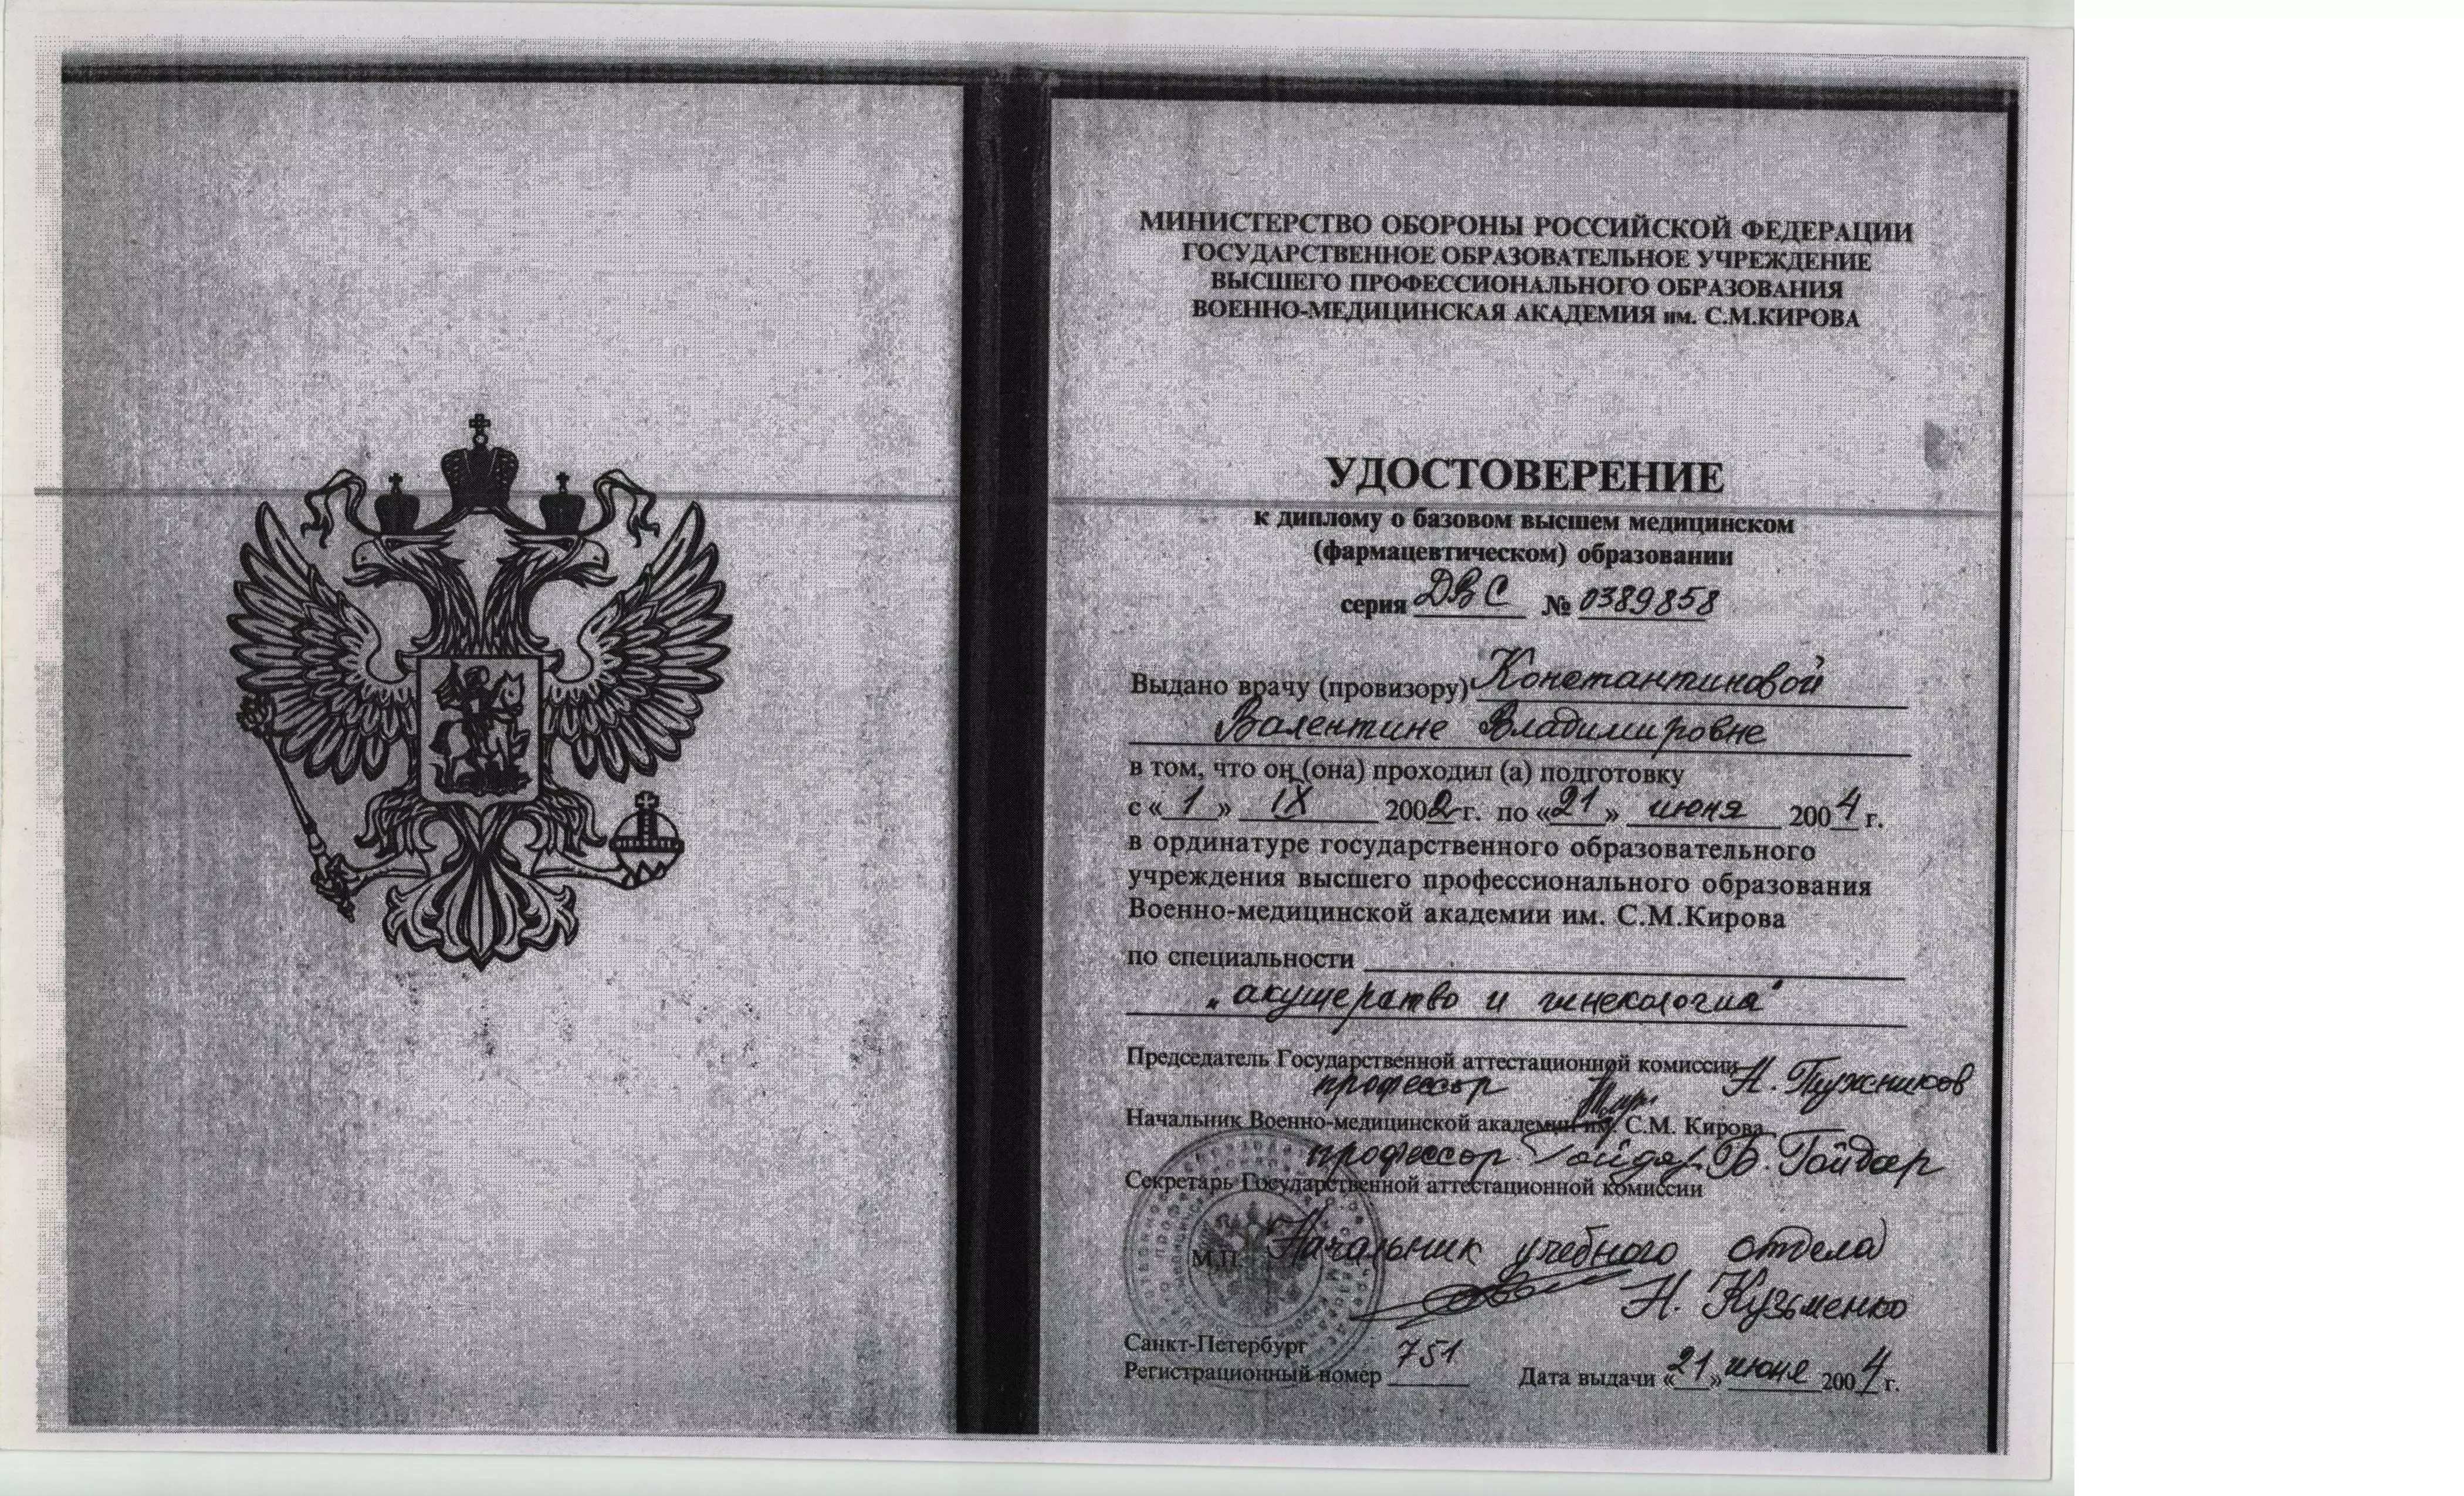 МИНИСТЕРСТВО ОБОРОНЫ РОССИЙСКОЙ ФЕДЕРАЦИИ
ГОСУДАРСТВЕННОЕ ОБРАЗОВАТЕЛЬНОЕ УЧРЕЖДЕНИЕ
ВЫСШЕГО ПРОФЕССИОНАЛЬНОГО ОБРАЗОВАНИЯ
ВОЕННО-МЕДИЦИНСКАЯ АКАДЕМИЯ им. С.М.КИРОВА
УДОСТОВЕРЕНИЕ
к диплому о базовом высшем медицинском
(фармацевтическом) образовании
серия ДВС № 0389858
Выдано врачу (провизору) Константиновой
Валентине Владимировне
в том, что он (она) проходил (а) подготовку
с «1» IX 2002 г. по «21» июня 2004 г.
в ординатуре государственного образовательного
учреждения высшего профессионального образования
Военно-медицинской академии им. С.М.Кирова
по специальности
„акушерство и гинекология"
Председатель Государственной аттестационной комиссии
профессор Н. Пужников
Начальник Военно-медицинской академии им. С.М. Кирова
профессор Гайдар Б. Гайдар
Секретарь Государственной аттестационной комиссии
М.П. Начальник учебного отдела
Н. Кузьменко
Санкт-Петербург
Регистрационный номер 751 Дата выдачи «21» июня 2004 г.